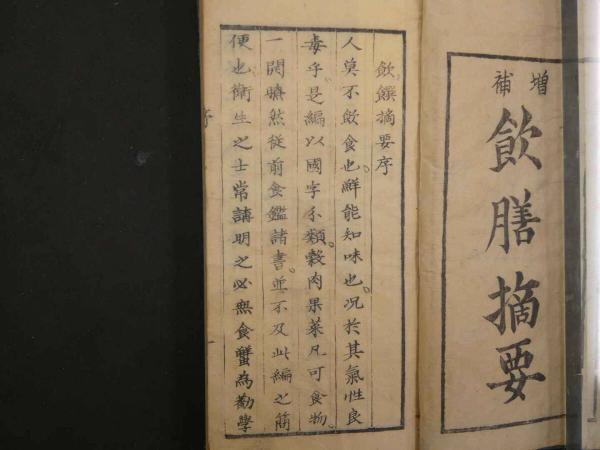 増補
飲膳摘要
飲饌摘要序
人莫不飲食也鮮能知味也况於其氣性良
毒乎是編以國字分類穀肉果菜凡可食物
一閱瞭然從前食鑑諸書並不及此編之簡
便也衛生之士常請明之必無食蟹為勸學
序
一